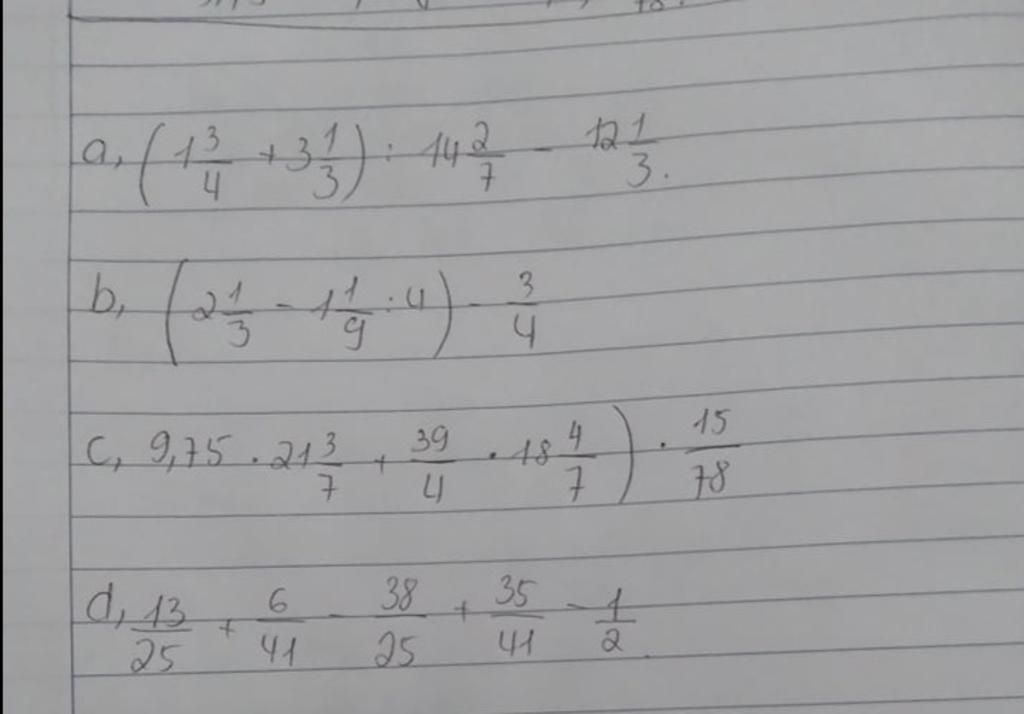 a, (1 3/4 + 3 1/3) : 14 2/7 - 12 1/3.
b, (2 1/3 - 1 1/9 . 4) - 3/4
c, 9,75 . 21 3/7 + 39/4 . 18 4/7) . 15/78
d, 13/25 + 6/41 - 38/25 + 35/41 - 1/2.